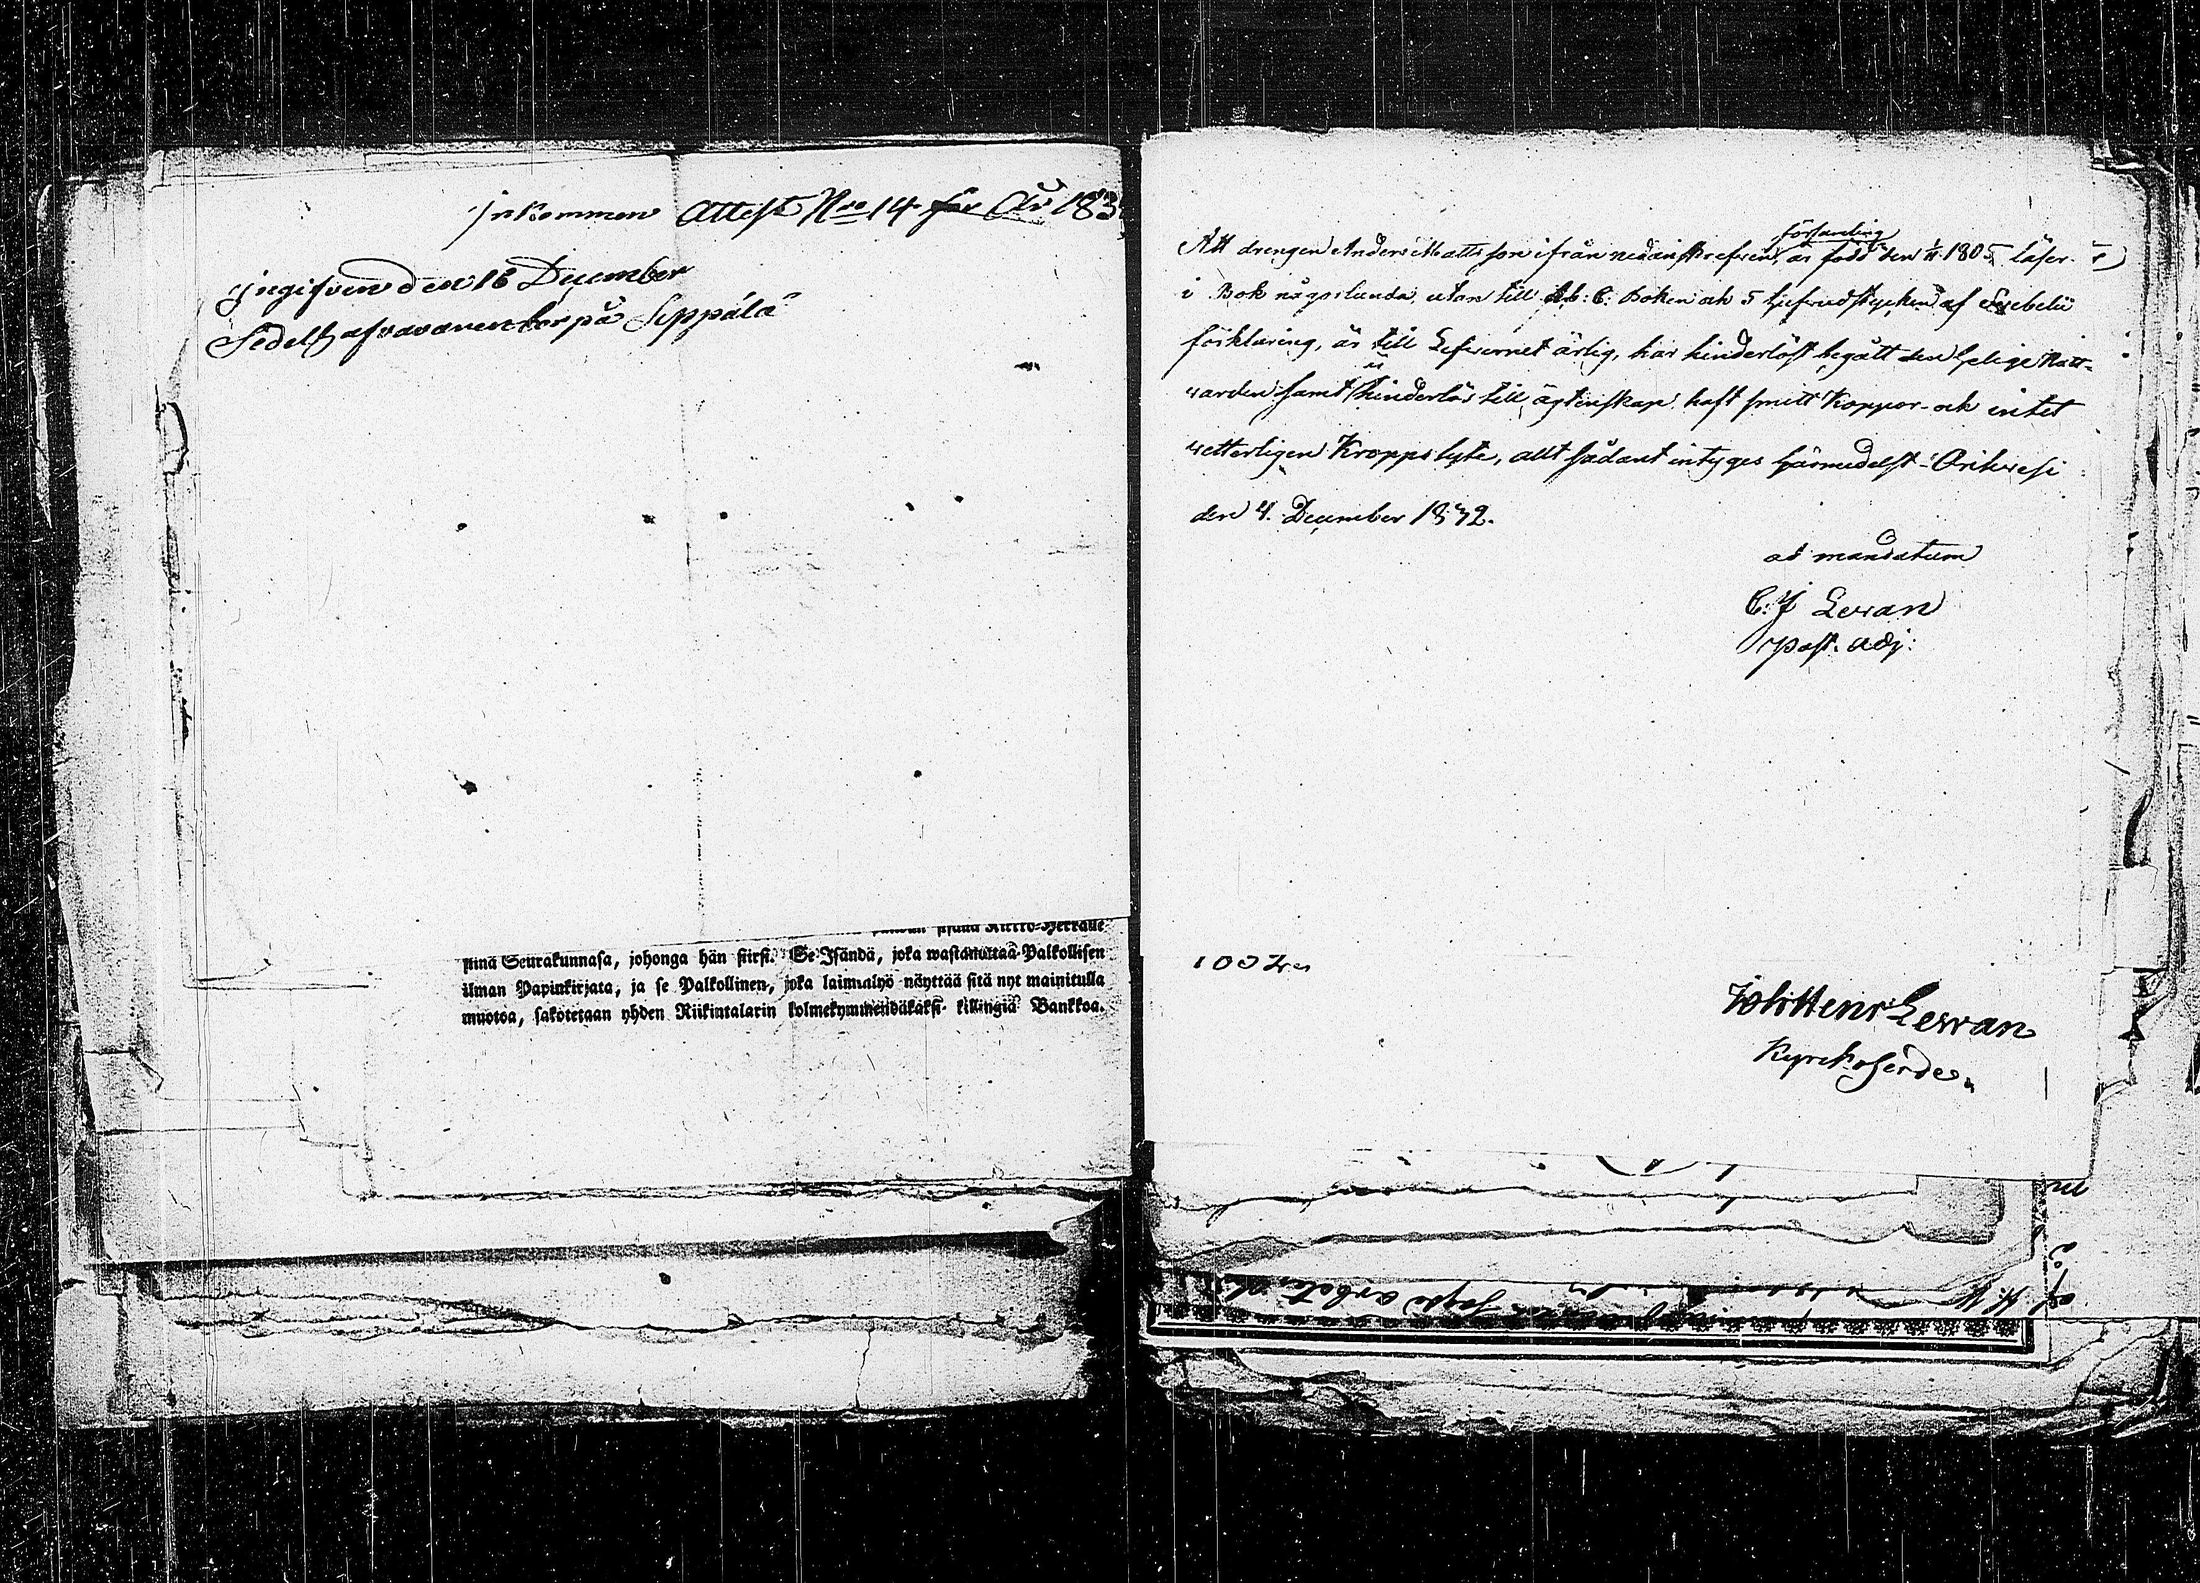 Inkommen Attest Nro 14 for År 183
Ingifven den 16 December
Sedelh afvavaren tor på Seppälä
sinä Seurakunnasa, johonga hän siirsi. Se Isändä, joka wastanottaa Palkollisen
ilman Papinkirjata, ja se Palkollinen, joka laiminlyö näyttää sitä nyt mainitulla
muotoa, sakotetaan yhden Riikintalarin kolmekymmendäkaksi killingiä Bankkoa.
församling
Att drengen Anders Mattsson ifrån nedanskrefven, är född den 1805 läser
i Bok någorlunda, utan till Ab: C: Boken ock 5 hufvudstycken af Svebelii
förklaring, är till Lefvernet ärlig, har hinderlöst begått den Helige Natt-
varden samt är hinderlös till ägtenskap, haft smitt Koppor ock intet
vetterligen Kroppslyte, allt sådant intyges härmedelst. Orihvesi
den 4. December 1832.
ad mandatum
C: J Levan
past. adj:
Levvan
Kyrckoherde.